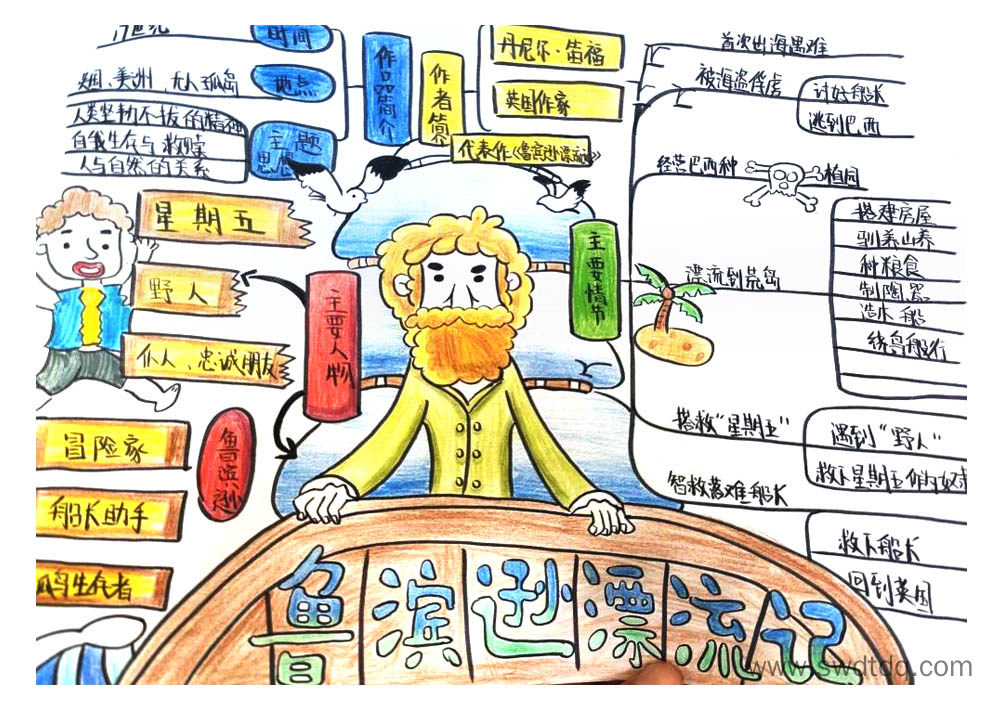 17世纪
时间
英国、美洲、无人孤岛
地点
人类坚韧不拔的精神
自我生存与救赎
人与自然的关系
主题
思想
作品简介
作者简介
丹尼尔·笛福
英国作家
代表作《鲁宾逊漂流记》
首次出海遇难
被海盗俘虏
讨好船长
逃到巴西
经营巴西种植园
主要情节
漂流到荒岛
搭建房屋
驯养山养
种粮食
制陶器
造小船
绕岛航行
搭救"星期五"
遇到"野人"
救下星期五作为奴隶
智救落难船长
救下船长
回到英国
星期五
野人
仆人、忠诚朋友
主要人物
鲁滨逊
冒险家
船长助手
孤岛生存者
鲁滨逊漂流记
www.swdtdq.com